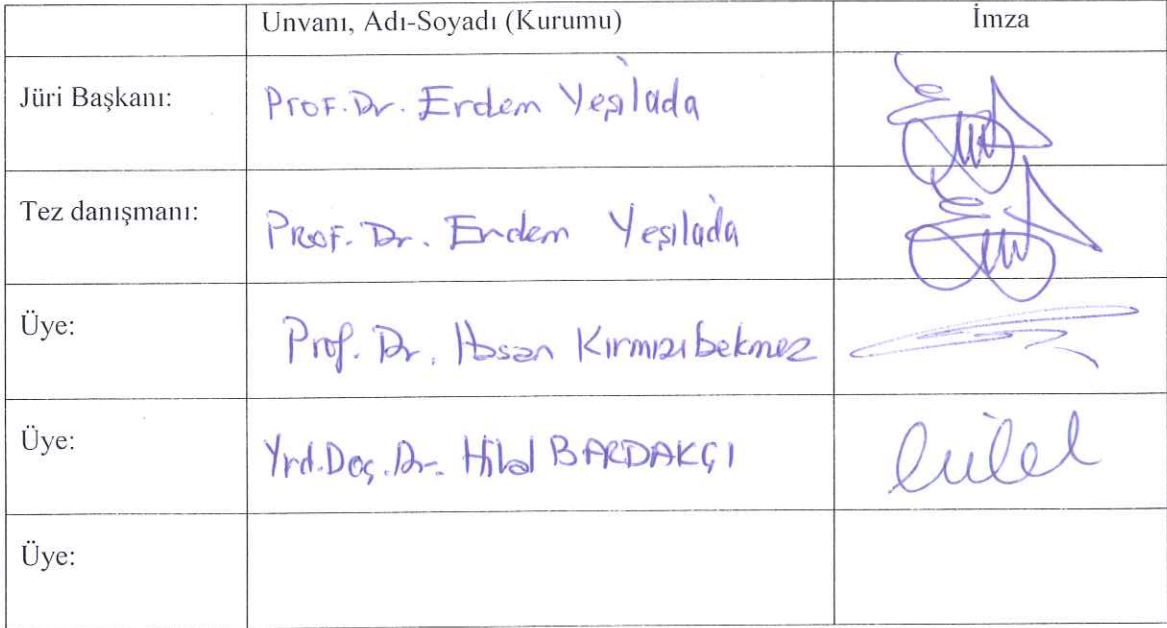 Unvanı, Adı-Soyadı (Kurumu) İmza
Jüri Başkanı: Prof. Dr. Erdem Yeşilada
Tez danışmanı: Prof. Dr. Erdem Yeşilada
Üye: Prof. Dr. Hasan Kırmızıbekmez
Üye: Yrd. Doç. Dr. Hilal BARDAKÇI
Üye: